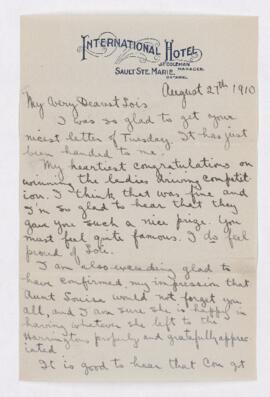 INTERNATIONAL HOTEL
J.F. COLEMAN
MANAGER.
SAULT STE. MARIE.
ONTARIO.
August 27th 1910
My Very Dearest Lois
I was so glad to get your
nicest letter of Tuesday. It has just
been handed to me.
My heartiest congratulations on
winning the ladies driving competit
ion. I think that was fine and
I'm so glad to hear that they
gave you such a nice prize. You
must feel quite famous. I do feel
proud of
I am also exceeding glad to
have confirmed, my impression that
Aunt Louise would not forget you
all, and I am sure she is happy in
having whatever she left to the
Harringtons properly and gratefully apprec
iated
It is good to hear that Con got